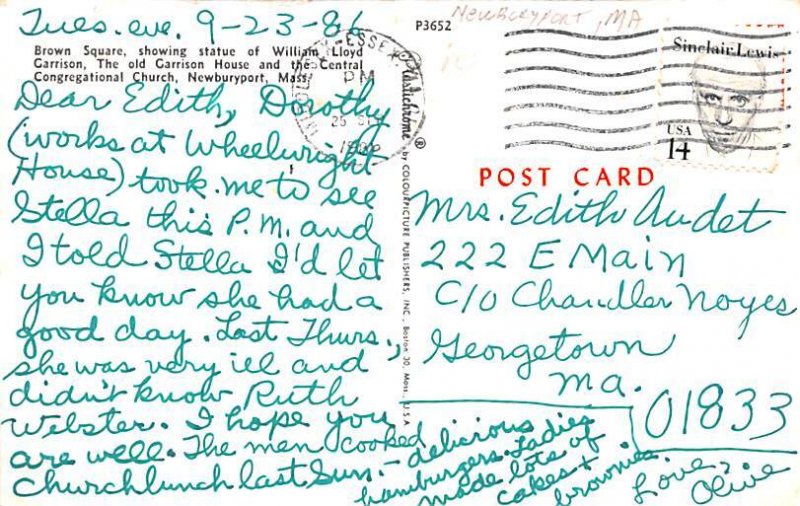 Tues. eve. 9-23-86
Brown Square, showing statue of William Lloyd
Garrison, The old Garrison House and the Central
Congregational Church, Newburyport, Mass.
Dear Edith, Dorothy
(works at Wheelwright
House) took me to see
Stella this P.M. and
I told Stella I'd let
you know she had a
good day. Last Thurs.,
she was very ill and
didn't know Ruth
Webster. I hope you
are well. The men cooked
Churchlunch last Sun. - delicious
hamburgers. Ladies
made lots of
cakes +
brownies
Love,
Olive
P3652
NEWBURYPORT, MA
ESSEX
PM
25
Plastichrome®
by COLOURPICTURE PUBLISHERS, INC., Boston 30, Mass., U.S.A.
Sinclair Lewis
USA
14
POST CARD
Mrs. Edith Audet
222 E Main
C/O Chandler Noyes
Georgetown
Ma.
01833